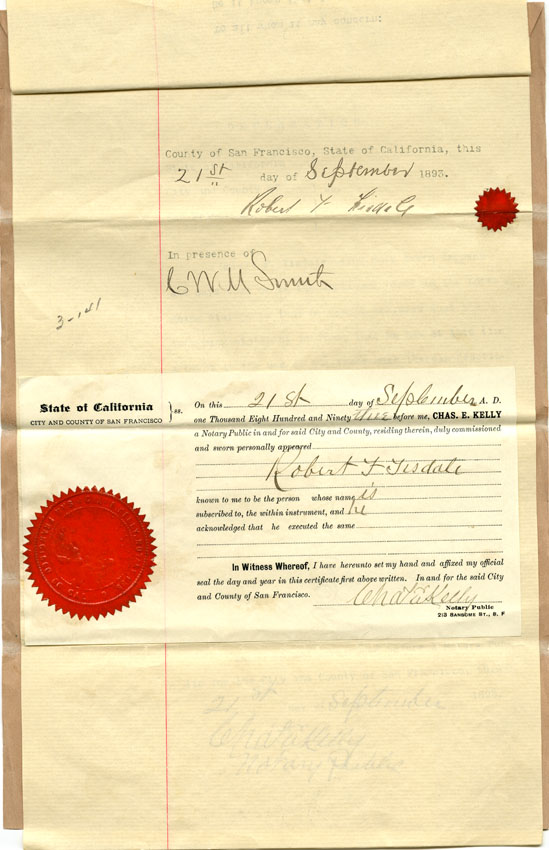 County of San Francisco, State of California, this
21st day of September 1893.
Robert F Tisdale
In presence of
C W M Smith
3-151
State of California
CITY AND COUNTY OF SAN FRANCISCO
} ss.
On this 21st day of September A. D.
one Thousand Eight Hundred and Ninety three before me, CHAS. E. KELLY
a Notary Public in and for said City and County, residing therein, duly commissioned
and sworn personally appeared
Robert F Tisdale
known to me to be the person whose name is
subscribed to, the within instrument, and he
acknowledged that he executed the same
In Witness Whereof, I have hereunto set my hand and affixed my official
seal the day and year in this certificate first above written. In and for the said City
and County of San Francisco.
Chas E Kelly
Notary Public
213 SANSOME ST., S. F
21st day of September 1893.
Chas E Kelly
Notary Public